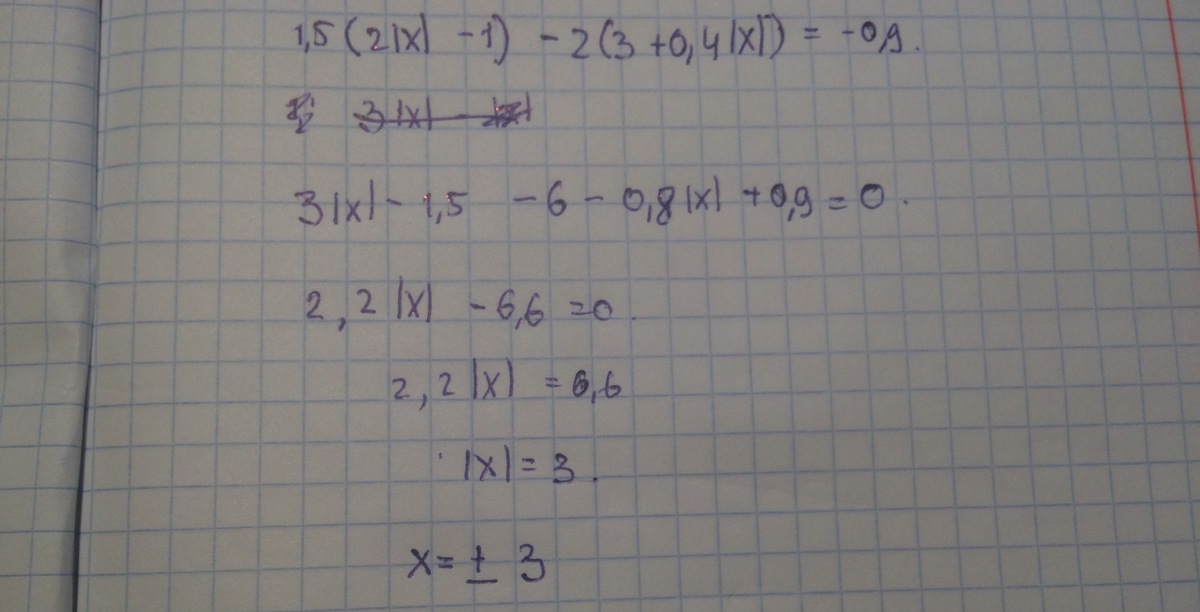 1,5(2|x| -1) -2(3+0,4|x|) = -0,9.
3|x| -
3|x| - 1,5 -6 - 0,8|x| +0,9=0.
2,2|x| -6,6 =0.
2,2|x| =6,6
|x|=3.
x=± 3